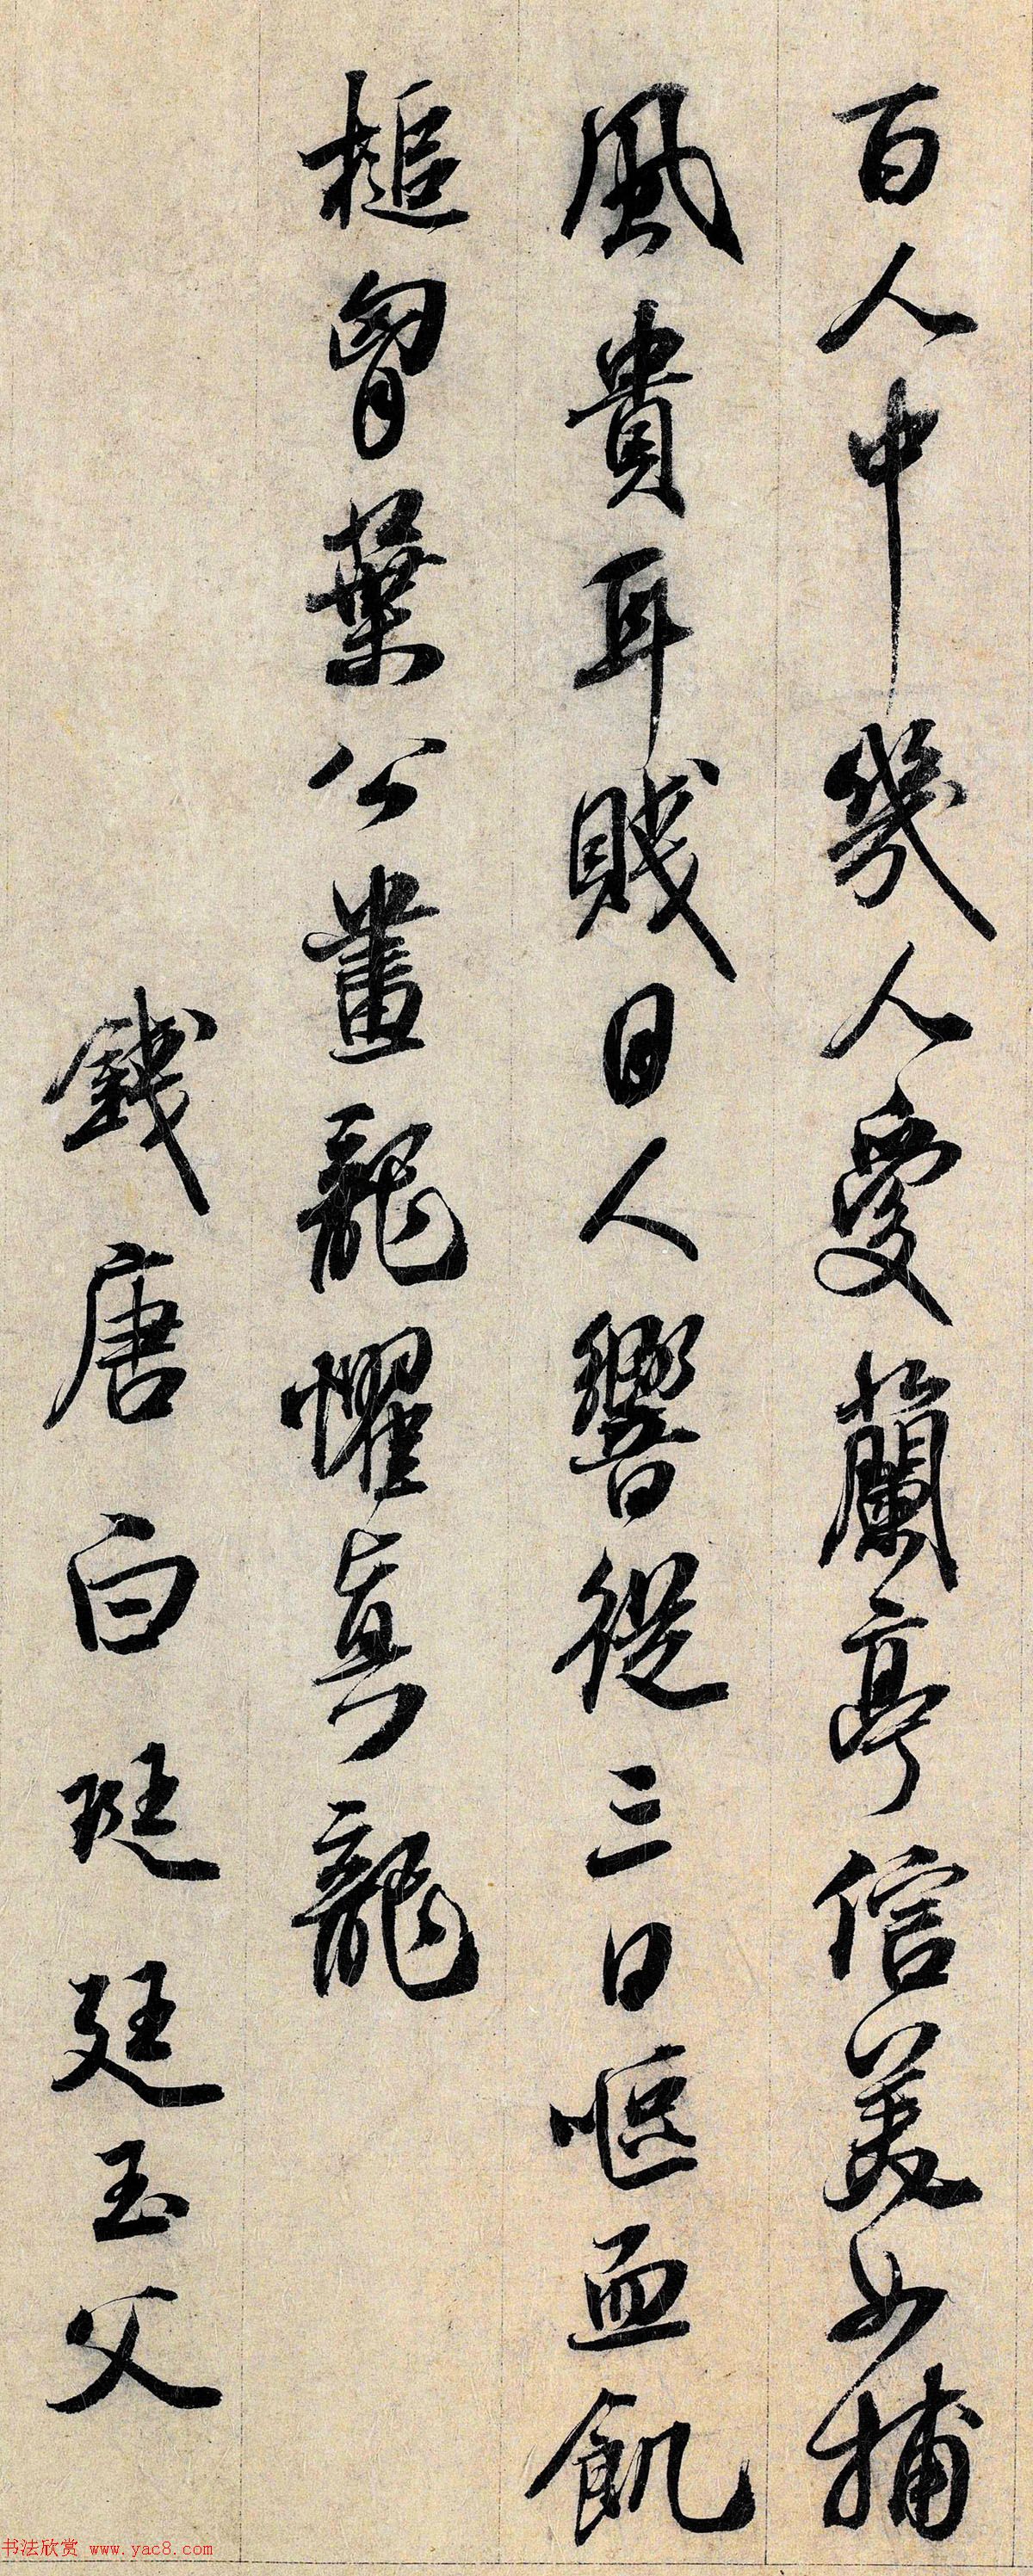 百人中幾人人愛蘭亭信美如捕
風貴耳賤目人響從三日嘔血飢
槌胷葉公畫龍懼真龍
錢唐白珽廷玉父
书法欣赏 www.yac8.com